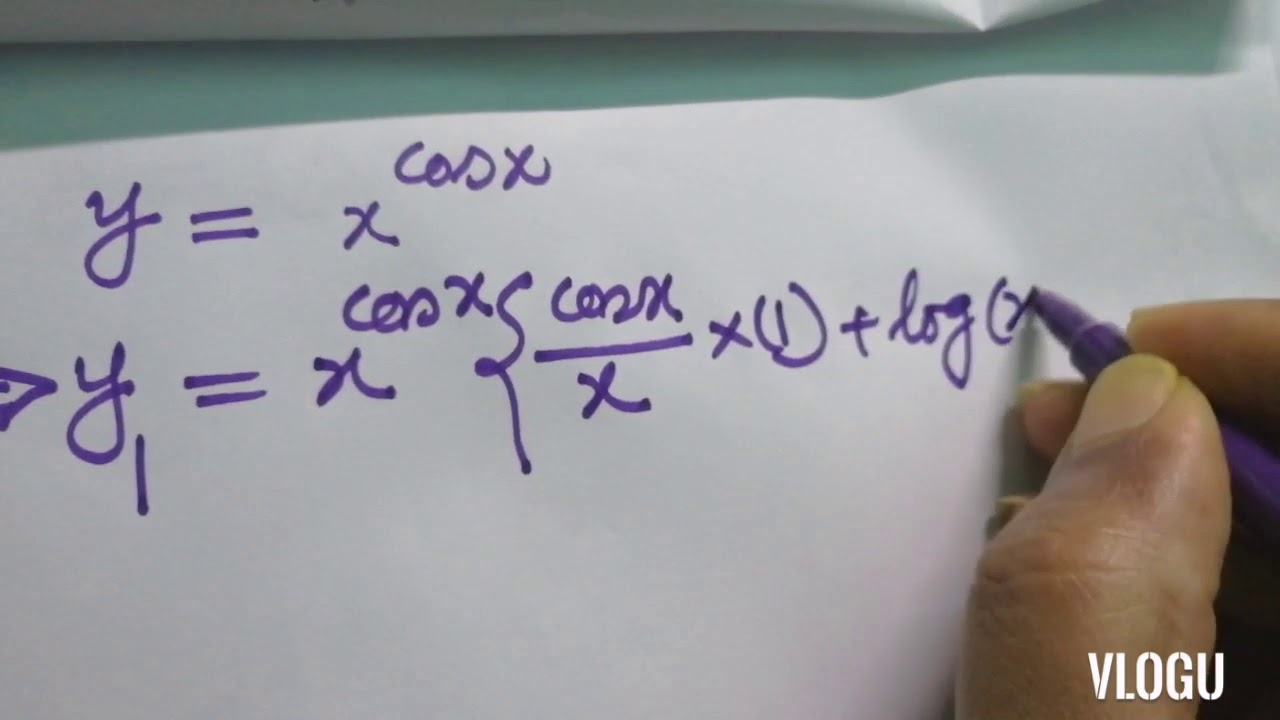 y = x^cosx
⇒ y₁ = x^cosx { cosx/x × (1) + log(x
VLOGU